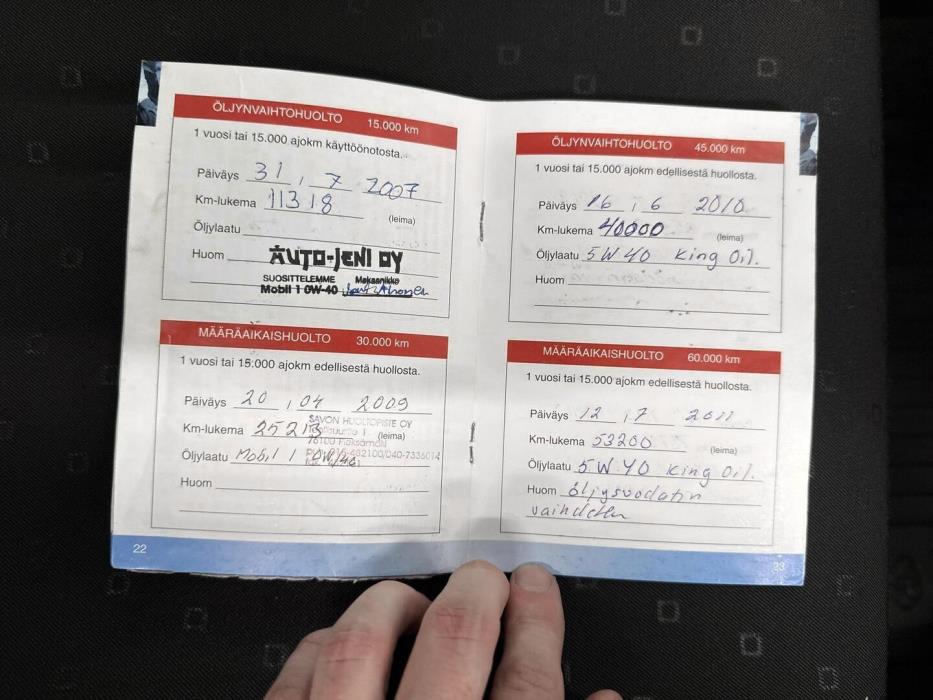 ÖLJYNVAIHTOHUOLTO 15.000 km
1 vuosi tai 15.000 ajokm käyttöönotosta.
Päiväys 31 , 7 2007
Km-lukema 11318
(leima)
Öljylaatu
Huom
AUTO-JENI OY
SUOSITTELEMME Mekaanikko
Mobil 1 0W-40
MÄÄRÄAIKAISHUOLTO 30.000 km
1 vuosi tai 15.000 ajokm edellisestä huollosta.
Päiväys 20 , 04 2009
SAVON HUOLTOPISTE OY
Km-lukema 25213 (leima)
76100 Pieksämäki
Öljylaatu Mobil 1 0W/40
Huom
22
ÖLJYNVAIHTOHUOLTO 45.000 km
1 vuosi tai 15.000 ajokm edellisestä huollosta.
Päiväys 16 , 6 2010
Km-lukema 40000
(leima)
Öljylaatu 5W40 King Oil.
Huom
MÄÄRÄAIKAISHUOLTO 60.000 km
1 vuosi tai 15.000 ajokm edellisestä huollosta.
Päiväys 12 , 7 2011
Km-lukema 53200
(leima)
Öljylaatu 5W40 King Oil.
Huom öljysuodatin
vaihdettu
23